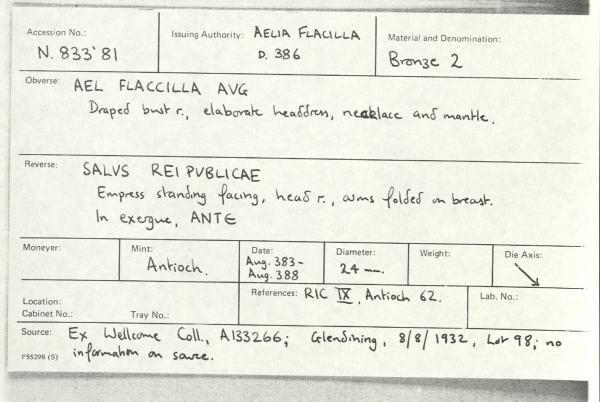 Accession No.: N. 833'81
Issuing Authority: AELIA FLACILLA
D. 386
Material and Denomination:
Bronze 2
Obverse: AEL FLACCILLA AVG
Draped bust r., elaborate headdress, necklace and mantle.
Reverse: SALVS REI PVBLICAE
Empress standing facing, head r., arms folded on breast.
In exergue, ANTE
Moneyer:
Mint:
Antioch.
Date:
Aug. 383-
Aug. 388
Diameter:
24 mm.
Weight:
Die Axis:
Location:
Cabinet No.: Tray No.:
References: RIC IX, Antioch 62.
Lab. No.:
Source: Ex Wellcome Coll., A133266; Glendining, 8/8/1932, Lot 98; no
P55298 (S) information on source.